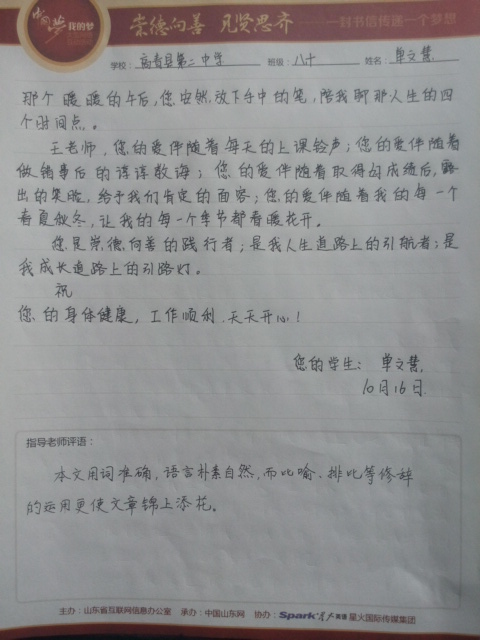 我的梦 崇德向善 见贤思齐 一封书信传递一个梦想
学校:高青县第二中学 班级:八十 姓名:单文慧
那个暖暖的午后,您安然放下手中的笔,陪我聊那人生的四
个时间点。
王老师,您的爱伴随着每天的上课铃声;您的爱伴随着
做错事后的谆谆教诲;您的爱伴随着取得好成绩后,露
出的笑脸,给予我们肯定的面容;您的爱伴随着我的每一个
春夏秋冬,让我的每一个季节都春暖花开。
您是崇德向善的践行者;是我人生道路上的引航者;是
我成长道路上的引路灯。
祝
您的身体健康,工作顺利,天天开心!
您的学生:单文慧
10月16日
指导老师评语:
本文用词准确,语言朴素自然,而比喻、排比等修辞
的运用更使文章锦上添花。
主办:山东省互联网信息办公室 承办:中国山东网 协办:Spark星火英语 星火国际传媒集团